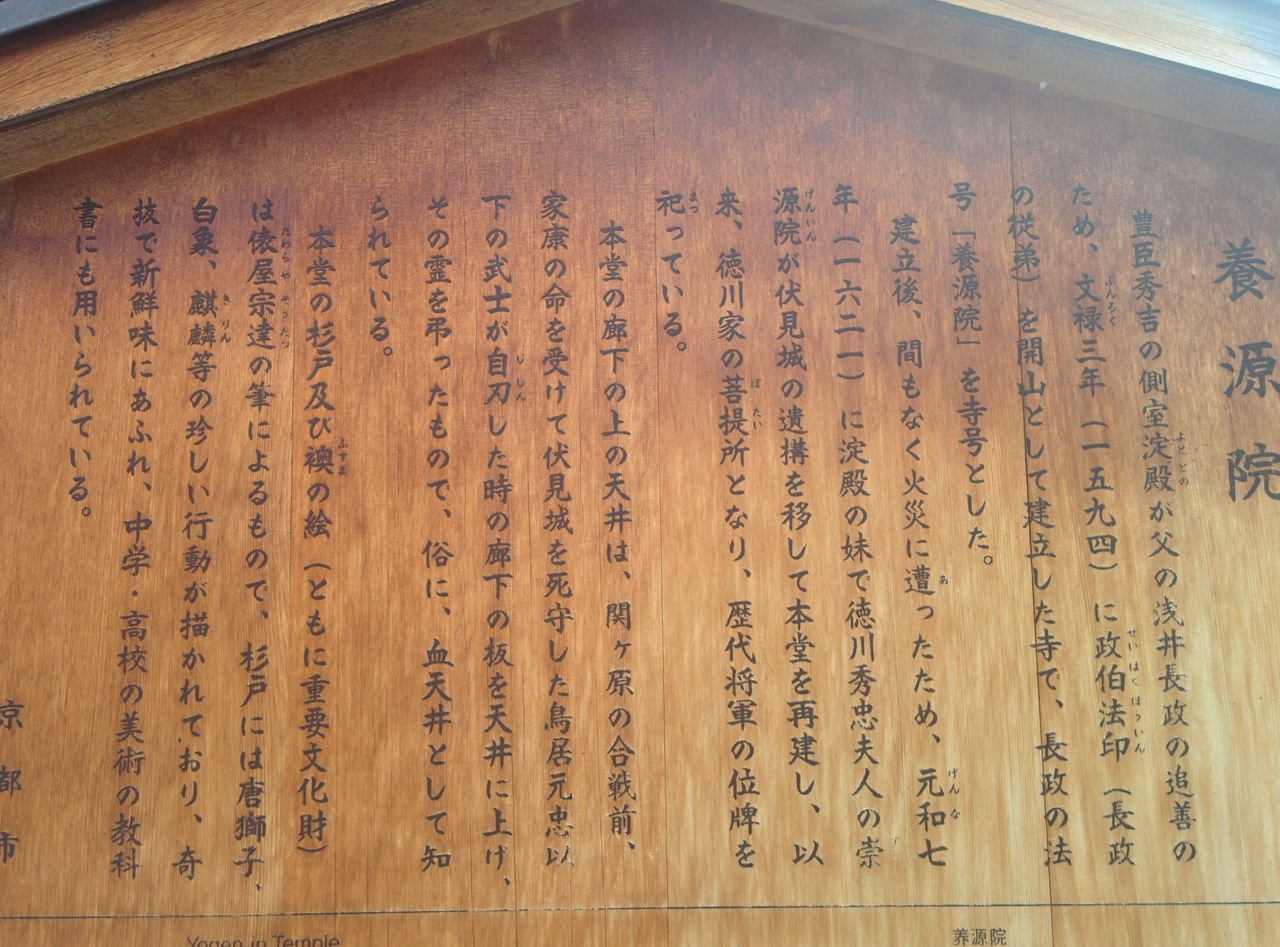 養源院
豊臣秀吉の側室淀殿が父の浅井長政の追善の
ため、文禄三年(一五九四)に政伯法印(長政
の従弟)を開山として建立した寺で、長政の法
号「養源院」を寺号とした。
建立後、間もなく火災に遭ったため、元和七
年(一六二一)に淀殿の妹で徳川秀忠夫人の崇
源院が伏見城の遺構を移して本堂を再建し、以
来、徳川家の菩提所となり、歴代将軍の位牌を
祀っている。
本堂の廊下の上の天井は、関ヶ原の合戦前、
家康の命を受けて伏見城を死守した鳥居元忠以
下の武士が自刃した時の廊下の板を天井に上げ、
その霊を弔ったもので、俗に、血天井として知
られている。
本堂の杉戸及び襖の絵(ともに重要文化財)
は俵屋宗達の筆によるもので、杉戸には唐獅子、
白象、麒麟等の珍しい行動が描かれており、奇
抜で新鮮味にあふれ、中学・高校の美術の教科
書にも用いられている。
京都市
Yogen in Temple
养源院